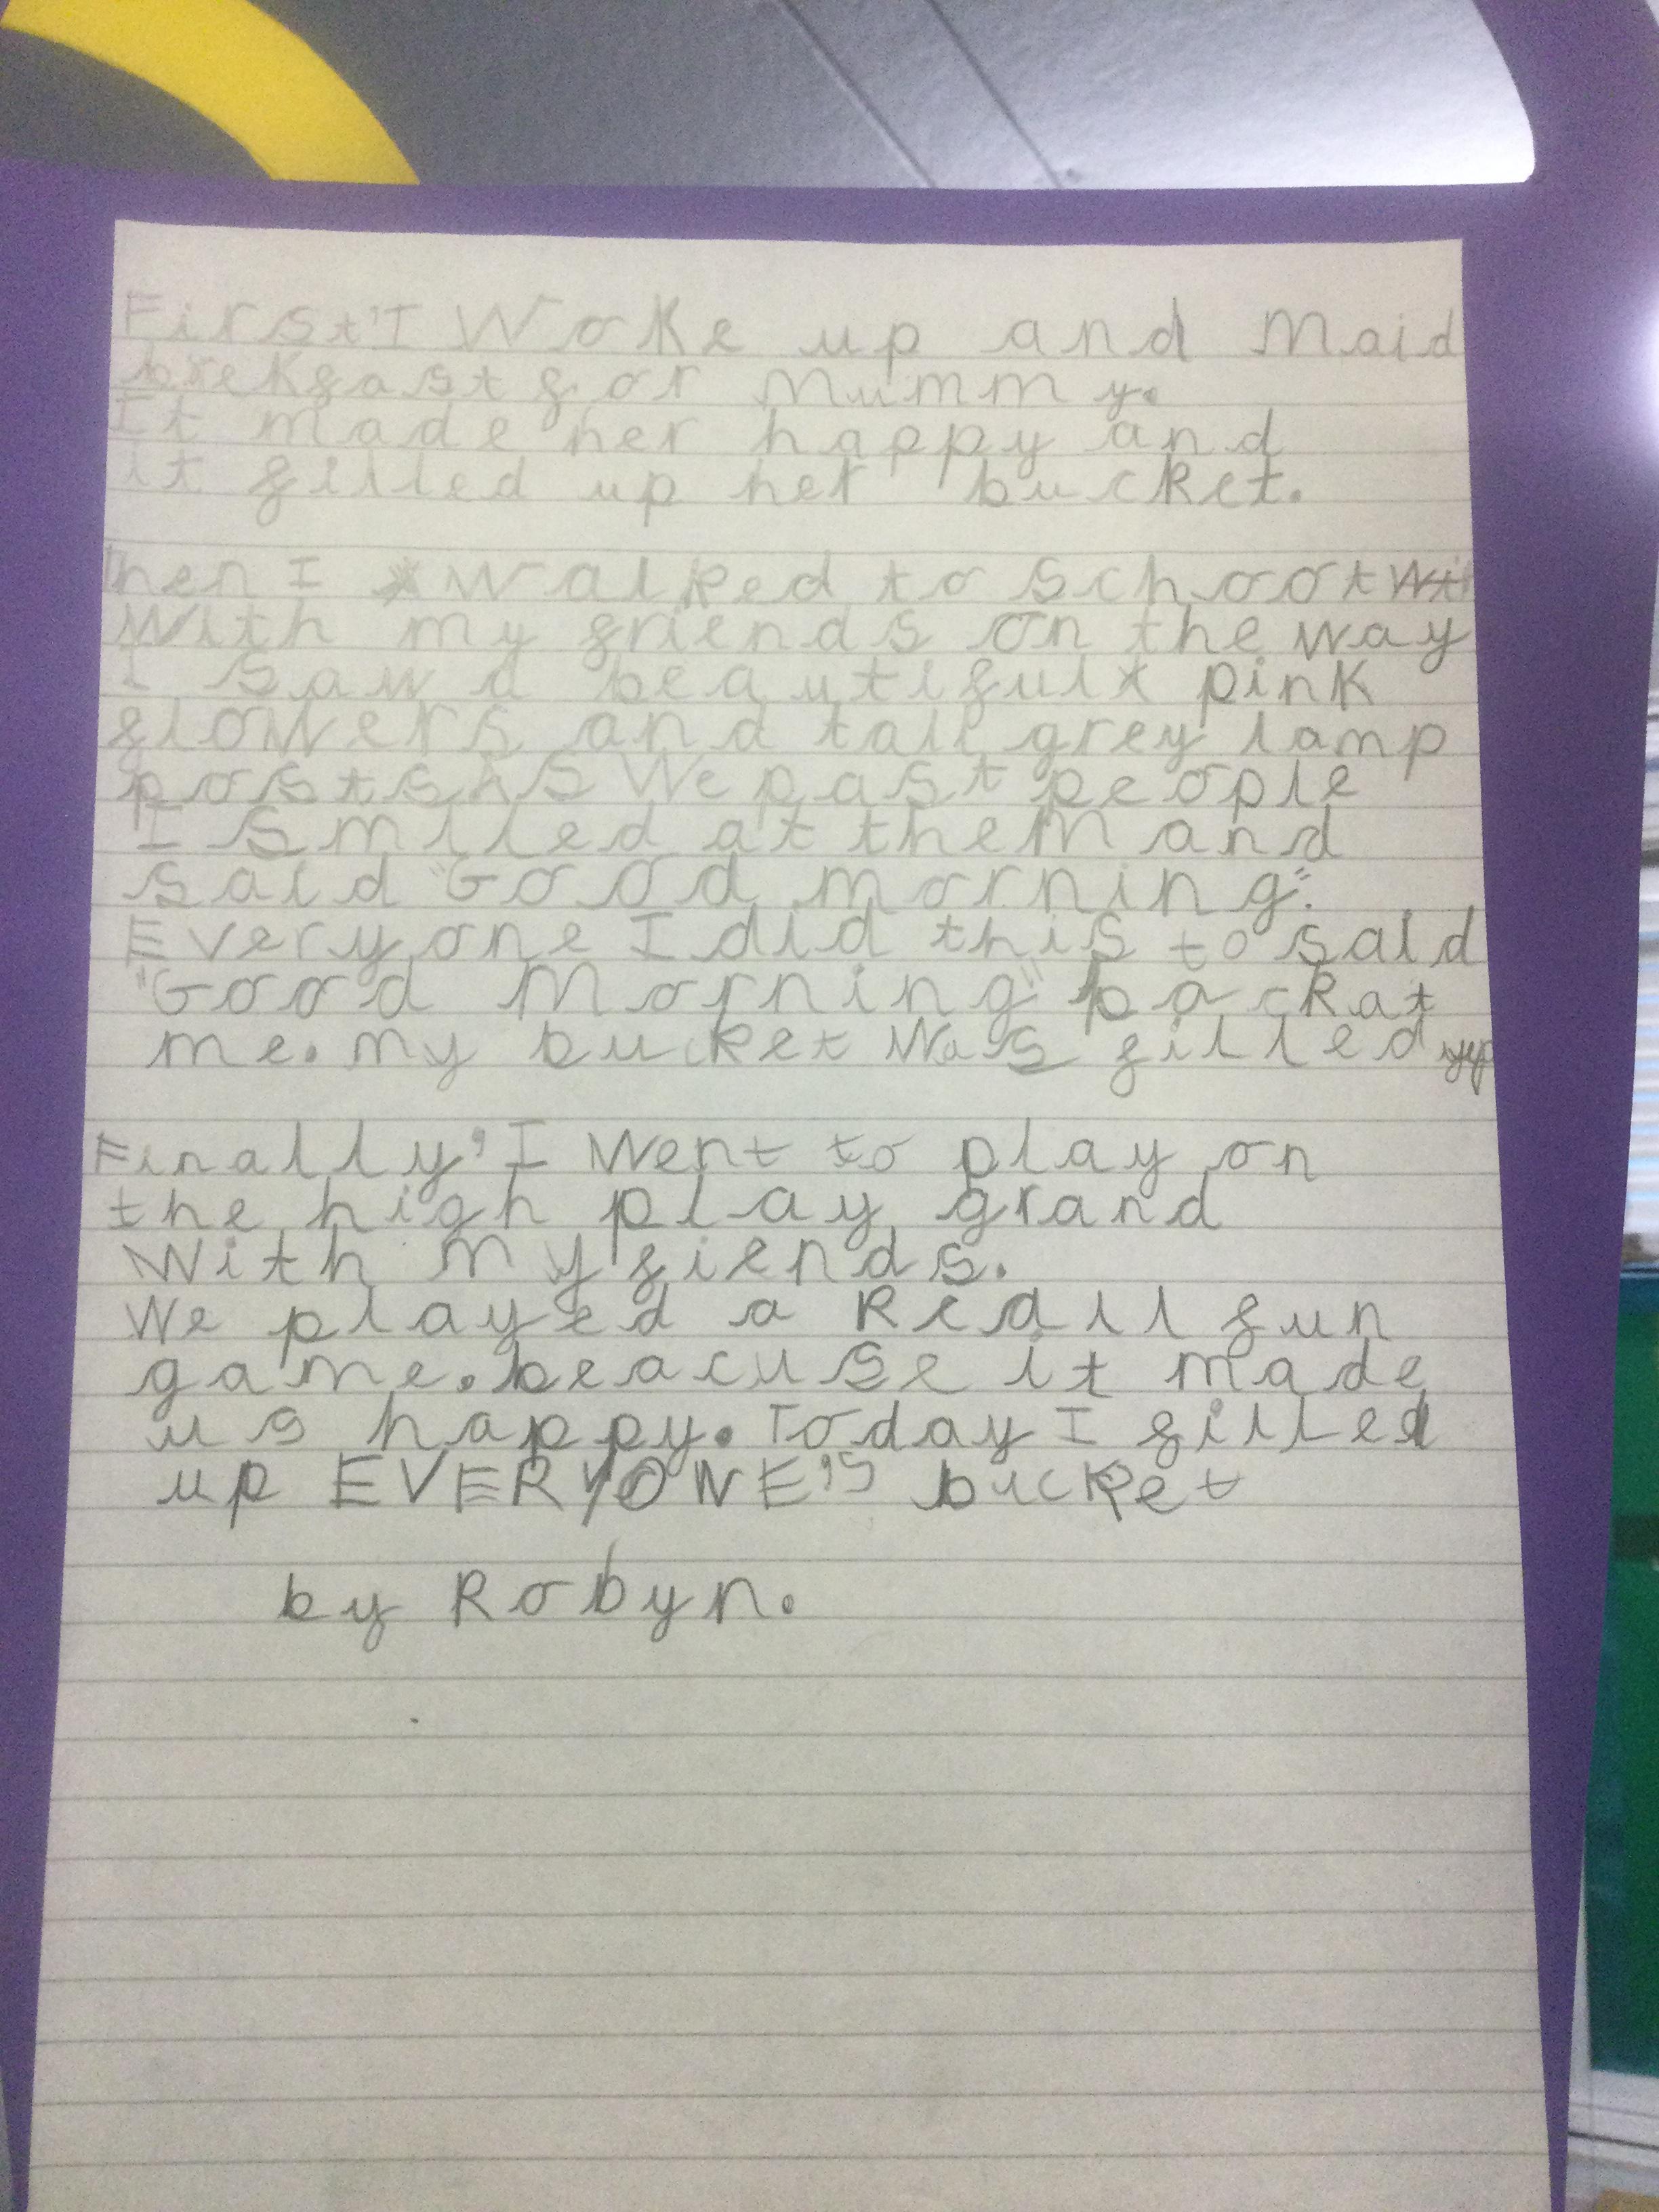 First, I Woke up and Maid
brekfast for Mummy.
It made her happy and
it filled up her bucket.
Then I walked to school wit
With my friends on the way
I saw a beautiful pink
flowers and tall grey lamp
posts As We past people
I smiled at them and
said "Good morning".
Everyone I did this to said
"Good Morning" back at
me. My bucket was filled up
Finally, I Went to play on
the high play grand
With my fiends.
We played a Reall fun
game. beacuse it made
us happy. Today I filled
up EVERYONE'S bucket
by Robyn.